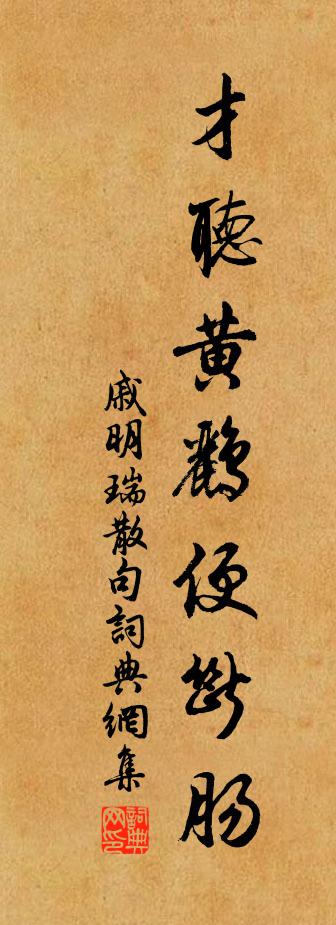 才聽黃鸝便斷腸
戚明瑞散句詞典網集
詞典
网印